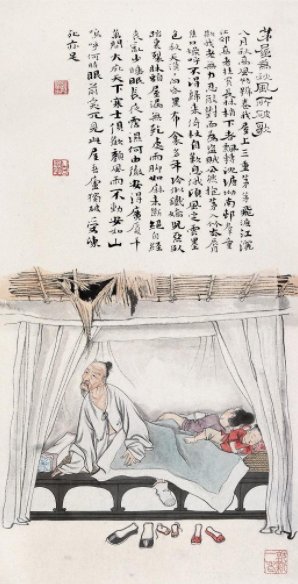 茅屋為秋風所破歌
八月秋高風怒號卷我屋上三重茅茅飛渡江灑
江郊高者挂罥長林梢下者飄轉沈塘坳南邨群童
欺我老無力忍能對面為盜賊公然抱茅入竹去唇
焦口燥呼不得歸來倚杖自歎息俄頃風定雲墨
色秋天漠漠向昏黑布衾多年冷似鐵嬌兒惡臥
踏裏裂牀頭屋漏無乾處雨脚如麻未斷絕自經
喪亂少睡眠長夜霑濕何由徹安得廣廈千
萬間大庇天下寒士俱歡顏風雨不動安如山
嗚呼何時眼前突兀見此屋吾廬獨破受凍
死亦足